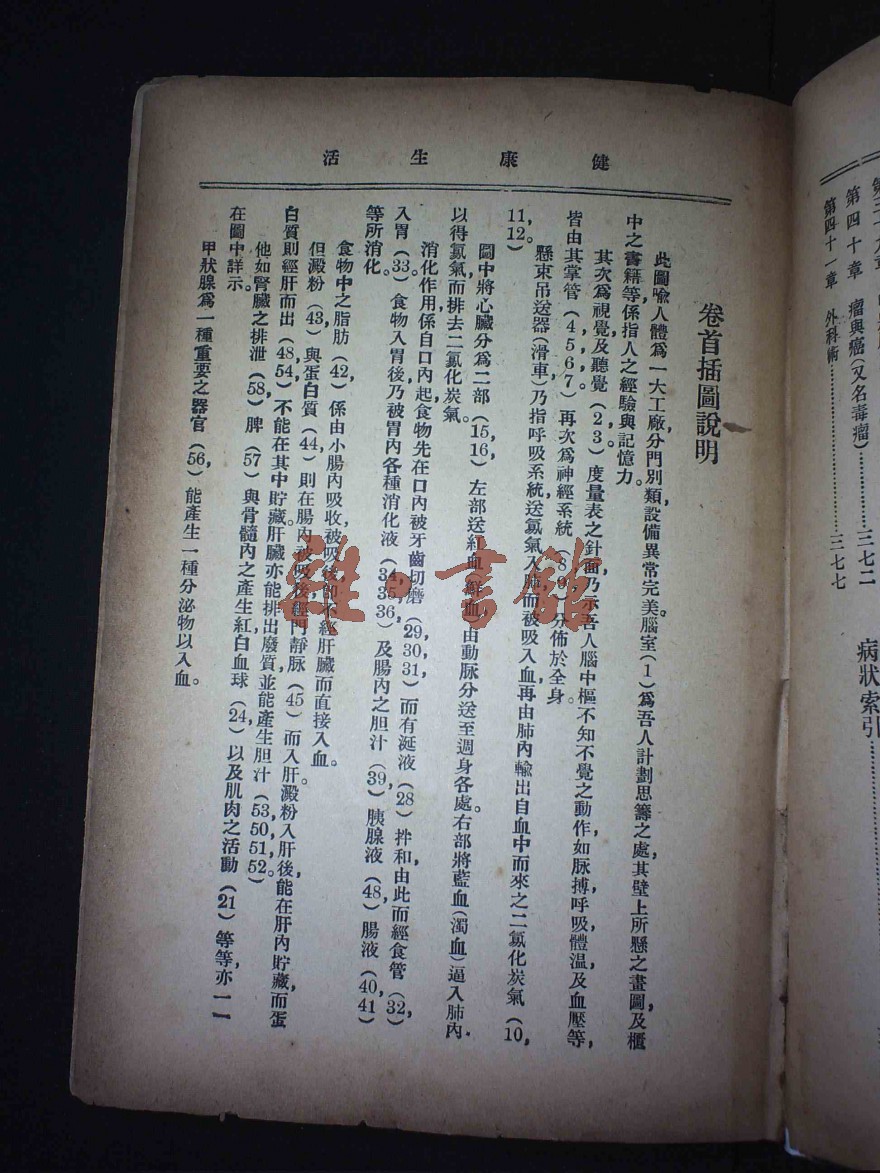 健康生活
卷首插圖說明
此圖喻人體為一大工廠,分門別類,設備異常完美。腦室(1)為吾人計劃思籌之處,其壁上所懸之畫圖,及櫃
中之書籍等,係指人之經驗與記憶力。
其次為視覺及聽覺(2,3)度量表之針面,乃示吾人腦中樞不知不覺之動作,如脉搏,呼吸,體溫,及血壓等,
皆由其掌管(4,5,6,7)再次為神經系統(8,9),分佈於全身。
懸束吊送器(滑車)乃指呼吸系統,送氣氣入肺,而被吸入血,再由肺內輸出自血中而來之二氯化炭氣(10,
11,12。)
圖中將心臟分為二部(15,16)左部送紅血(鮮血)由動脉分送至週身各處。右部將藍血(濁血)逼入肺內.
以得氯氣而排去二氯化炭氣。
消化作用,係自口內起,食物先在口內被牙齒切磨(29,30,31)而有涎液(28)拌和,由此而經食管(32,)
入胃(33)食物入胃後,乃被胃內各種消化液(34,35,36)及腸內之胆汁(39)胰腺液(48)腸液(40,41)
等所消化。
食物中之脂肪(42)係由小腸內吸收,被吸後,卽不經肝臟而直接入血。
但澱粉(43)與蛋白質(44)則在腸內被吸後,經門靜脉(45)而入肝。澱粉入肝後,能在肝內貯藏,而蛋
白質則經肝而出(48,54)不能在其中貯藏。肝臟亦能排出廢質,並能產生胆汁(53,50,51,52。)
他如腎臟之排泄(58,)脾(57)與骨髓內之產生紅白血球(24,)以及肌肉之活動(21)等等,亦一一
在圖中詳示。
甲狀腺為一種重要之器官(56,)能產生一種分泌物以入血。
第四十章 瘤與癌(又名毒瘤)……三七二
第四十一章 外科術……三七七
病狀索引……
雜·書館